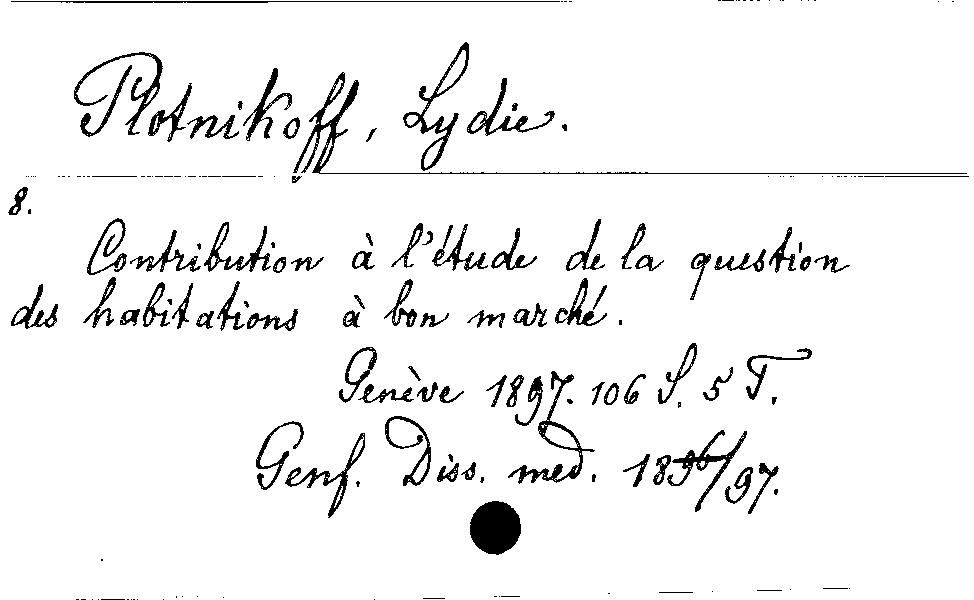 Plotnikoff, Lydie.
8.
Contribution à l'étude de la question
des habitations à bon marché.
Genève 1897. 106 S. 5 T.
Genf. Diss. med. 1896/97.